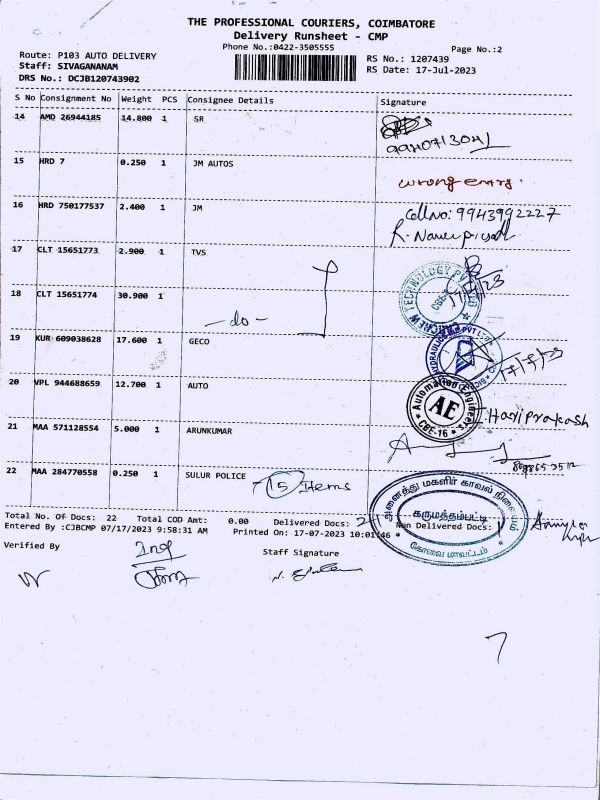 THE PROFESSIONAL COURIERS, COIMBATORE
Delivery Runsheet - CMP
Phone No.:0422-3505555
Page No.:2
Route: P103 AUTO DELIVERY
RS No.: 1207439
Staff: SIVAGANANAM
RS Date: 17-Jul-2023
DRS No.: DCJB120743902
S No Consignment No Weight PCS Consignee Details Signature
14 AMD 26944185 14.800 1 SR
15 HRD 7 0.250 1 JM AUTOS
wrong entry.
16 HRD 750177537 2.400 1 JM
Cell no: 9943992227
17 CLT 15651773 2.900 1 TVS
18 CLT 15651774 30.900 1
-do-
19 KUR 609038628 17.600 1 GECO
20 VPL 944688659 12.700 1 AUTO
Automation Engineers
AE
CBE-16
Hari Prakash
21 MAA 571128554 5.000 1 ARUNKUMAR
22 MAA 284770558 0.250 1 SULUR POLICE
15 Items
அனைத்து மகளிர் காவல் நிலையம்
கருமத்தம்பட்டி
கோவை மாவட்டம்
Total No. Of Docs: 22 Total COD Amt: 0.00 Delivered Docs: 21 Non Delivered Docs: 1
Entered By :CJBCMP 07/17/2023 9:58:31 AM Printed On: 17-07-2023 10:01:46
Verified By
Staff Signature